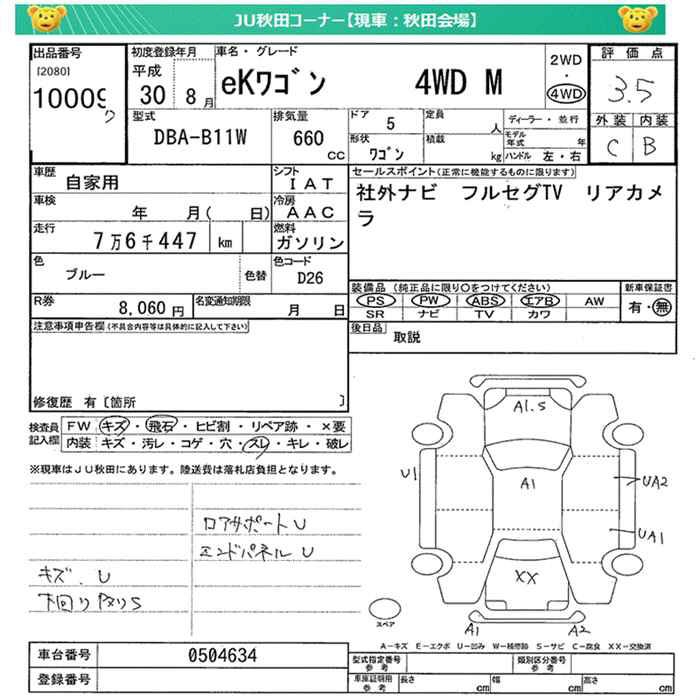 JU秋田コーナー【現車：秋田会場】
出品番号
[2080]
10009
初度登録年月
平成
30 8月
車名・グレード
eKワゴン 4WD M
2WD
・
4WD
評価点
3.5
外装 内装
C B
型式
DBA-B11W
排気量
660
CC
ドア 5
形状
ワゴン
定員
人
積載
kg
ディーラー・並行
モデル年式 年
ハンドル 左・右
車歴
自家用
シフト
IAT
車検
年 月( 日)
冷房
AAC
走行
7万6千447 km
燃料
ガソリン
色
ブルー
色替
色コード
D26
R券
8,060円
名変通知期限
月 日
セールスポイント(正常に機能するものに限ります)
社外ナビ フルセグTV リアカメ
ラ
装備品 (純正品に限り○をつけてください)
PS PW ABS エアB AW
SR ナビ TV カワ
新車保証書
有・無
後日品
取説
注意事項申告欄(不具合内容等は具体的に記入して下さい)
修復歴 有〔箇所 〕
検査員
記入欄
FW キズ・飛石・ヒビ割・リペア跡・×要
内装 キズ・汚レ・コゲ・穴・スレ・キレ・破レ
※現車はJU秋田にあります。陸送費は落札店負担となります。
コアサポートU
エンドパネルU
キズ．U
下回りサビS
A1.5
U1
A1
UA2
UA1
XX
スペア
A1 A2
A－キズ E－エクボ U－凹み W－補修跡 S－サビ C－腐食 XX－交換済
車台番号 0504634
登録番号
型式指定番号
参考
類別区分番号
参考
車庫証明用
参考
長さ cm 幅 cm 高さ cm